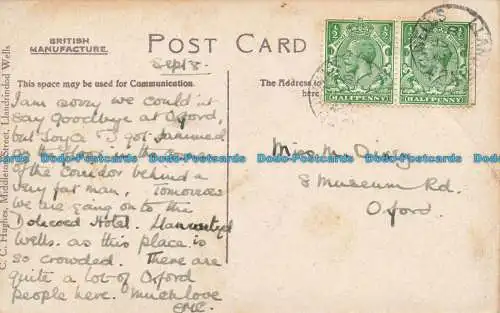 BRITISH
MANUFACTURE.
POST CARD
Sept 8.
This space may be used for Communication.
The Address to
here.
HALFPENNY
HALFPENNY
I am sorry we couldn't
say goodbye at Oxford,
but Joyce & I got jammed
of the corridor behind a
very fat man. Tomorrow
we are going on to the
Dolecoed Hotel. Llanwrtyd
Wells. as this place is
so crowded. There are
quite a lot of Oxford
people here. Much love
Miss M.
8 Museum Rd.
Oxford
C. C. Hughes, Middleton Street, Llandrindod Wells
Bodo-Postcards Bodo-Postcards Bodo-Postcards Bodo-Postcards Bodo-Postcards